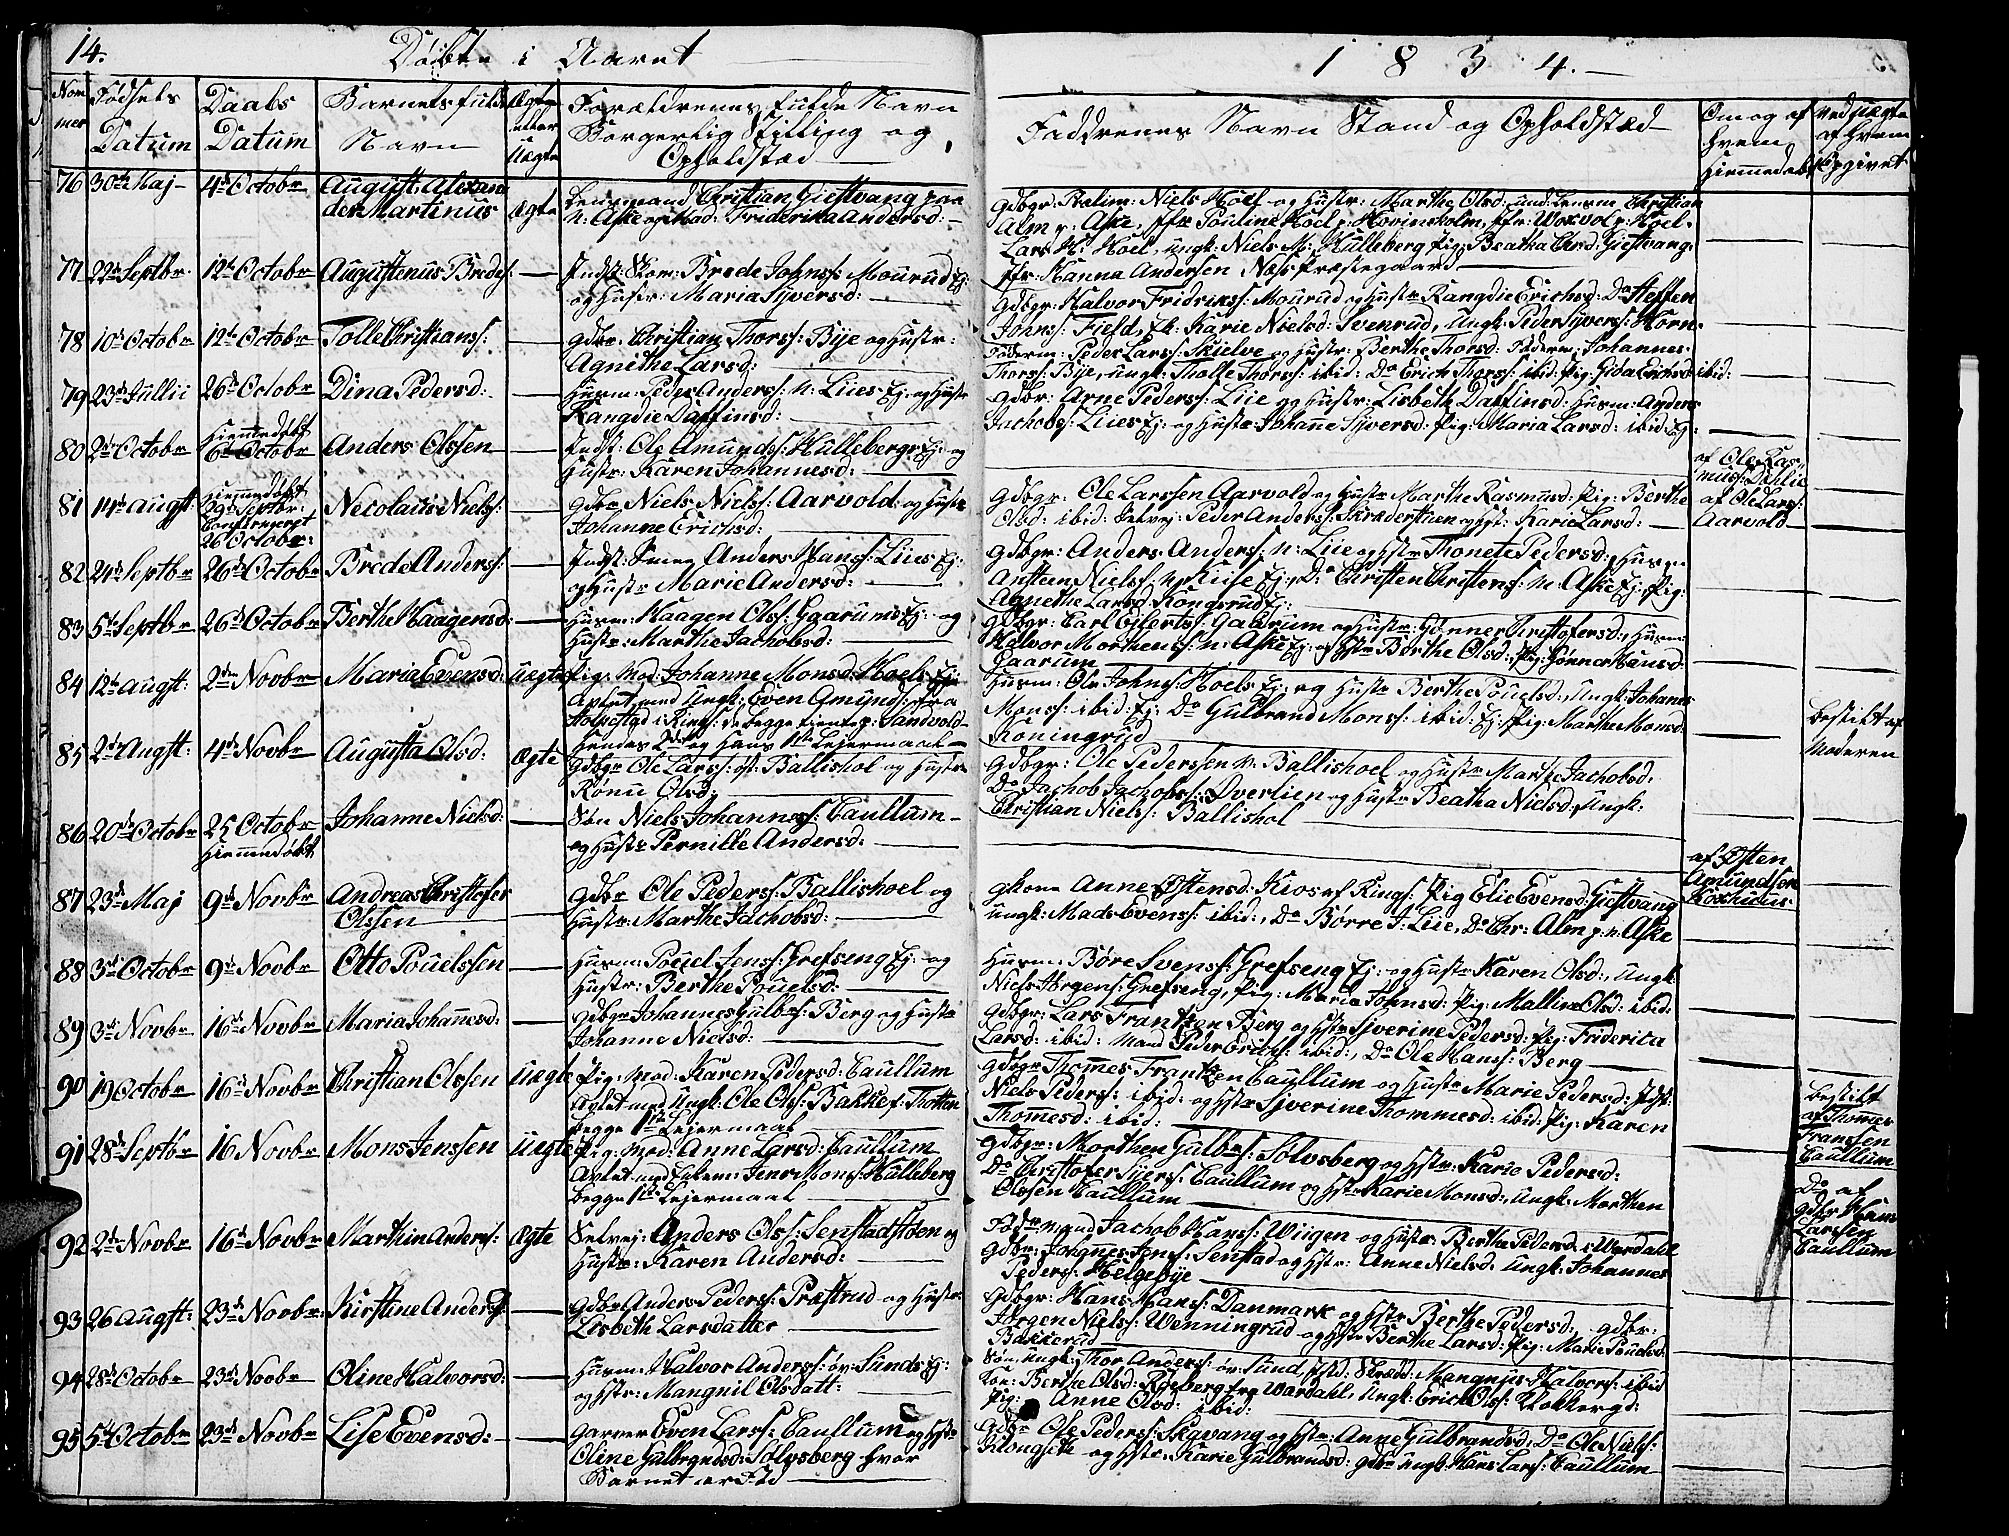 14.
Døbte i Aaret
1834.
Nom
mer
Fødsels
Datum
Daabs
Datum
Barnets fulde
Navn
Ægte
eller
Uægte
Forældrenes fulde Navn
Borgerlig Stilling og
Opholdstæd
Faddrenes Navn Stand og Opholdstæd
Om og af
hvem
hiemmedøbt
ved uægte
af hvem
Opgivet
76 30te Maj 4de Octobr August Alexan
der Martinus Ægte
Lensmand Christian Giestvang paa
n: Aske og Mad: Friderika Andersd:
Alm p: Aske, Jfr Pouline Hoel p: Hovinsholm, Jfr: Woxvol p: Hoel
Lars H: Hoel, Ungk: Niels M: Hulleberg Pig: Beatha Giestvang.
Jfr: Hanna Andersen Næs Præstegaard
77 22de Septbr 12te Octobr Augustenus Bredes:
Brede Johnss: Mourud Ej:
og Hustr: Maria Syversd:
Gdbgr: Halvor Fridrikss: Mourud og Hustr Rangdie Erichsd: Do Steffen
Johnss: Field, Karie Nielsd: Svenrud, Ungk: Peder Syverss: Horn
78 10de Octobr 12te Octobr Tolle Christianss:
Gdbr: Christian Thorss: Bye og Hustr:
Agnethe Larsd:
Peder Larss: Skielve og Hustr: Berthe Thorsd: Johannes
Thorss: Bye, Ungk: Tholle Thorss: ibid: Do Erich Thorss: ibid: Pig: Erichsd ibid:
79 23de Julii 26de Octobr Dina Pedersd:
Husm: Peder Anderss: n: Liies Ej: og Hustr
Rangdie Daffinsd:
Gdbr: Arne Pederss: Liie og Hustr: Lisbeth Daffinsd: Husm: Anders
Jachobs: Liies Ej: og Hustr: Johane Syversd: Pig: Maria Larsd: ibid: Ej:
80 2den Octobr Hiemmedøbt
6te Octobr Anders Olssen
Indst: Ole Amundss: Hullebergs Ej: og
Hustr: Karen Johannesd:
af Ole Ras
muss: Dahlie
81 14de Augst: Hiemmedøbt
29de Septbr:
Confirmeret
26 Octobr: Nicolaus Nielss:
Gdbr Niels Nielss: Aarvold og Hustr
Johanne Erichsd:
Gdbgr: Ole Larssen Aarvold og Hustr Marthe Rasmusd: Pig: Berthe
Olsd: ibid: Selvej: Peder Anderss: Skrederstuen og Hst: Karie Larsd:
af Ole Larss:
Aarvold
82 24de Septbr 26de Octobr Brede Anderss:
Indst: Smeg Anders Hanss: Liies Ej:
og Hustr: Marie Andersd:
Gdbgr: Anders Anderss: n: Liie og Hstr Thonete Pedersd: Husm
Ansteen Nielss: Ej: Do Christen Christens: n: Aske Ej: Pig:
Agnethe Larsd Kongsrud Ej:
83 5te Septbr 26de Octobr Berthe Haagensd:
Husm: Haagen Olss: Gaarums Ej: og
Hustr: Marthe Jachobsd:
Gdbgr: Carl Eilertss: Gaarum og Hustr: Gønner Christofersd: Husm:
Halvor Morthenss: n: Aske Ej: og Hstr Berthe Olsd: Pig: Gønner Hansd:
Gaarum
84 12te Augst: 2den Novbr Maria Evensd: Uægte
Pig: Mod: Johanne Monsd: Hoels Ej:
Avlet med Ungk: Even Amunds: fra
i Rings: de begge tiente p: Sandvold
Hendes 2det og Hans 1ste Lejermaal
Husm: Ole Johns: Hoels Ej: og Hustr Berthe Pouelsd:, Ungk: Johanes
Monss: ibid: Ej: Do Gulbrand Monss: ibid: Ej: Pig: Marthe Monsd:
Koningrud
bestilt af
Moderen
85 2den Augst: 4de Novbr Augusta Olsd: Ægte
Gdbgr Ole Larss: ost: Ballishol og Hustr
Ronu Olsd:
Gdbgr: Ole Pederssen v: Ballishoel og Hustr Marthe Jachobsd:
Do Jachob Jachobss: Dverlien og Hustr Beatha Nielsd: Ungk:
Christian Nielss: Ballishol
86 20de Octobr 25 Octobr
Hiemmedøbt Johanne Nielsd:
Niels Johanness: Caullum
og Hustr Pernille Andersd:
af Østen
Amundsen
87 23de Maj 9de Novbr Andreas Christofer
Olssen
Gdbr Ole Pederss: Ballishoel og
Hustr: Marthe Jachobsd:
Anne Østensd: Kios af Rings: Pig Elie Evensd: Giestvang
Ungk: Mads Evenss: ibid:, Do Børre J: Liie, Do Chr: Alm p: n: Aske
88 3de Octobr 9de Novbr Otto Pouelssen
Husm: Pouel Jenss: Grefseng Ej: og
Hustr: Berthe Pouelsd:
Husm: Børe Svenss: Grefseng Ej: og Hustr Karen Olsd:, Ungk
Niels Jørgens: Grefseng, Pig: Maria Johnsd: Pig: Malline Olsd: ibid:
89 3de Novbr 16de Novbr Maria Johanesd:
Gdbgr Johannes Gulbrs: Berg og Hustr
Johanne Nielsd:
Gdbgr: Lars Frantzen Berg og Hstr Syverine Pedersd: Pig: Friderica
Larsd: ibid: Mand Peder Erichs: ibid:, Do Ole Hanss: Berg
90 19 Octobr 16de Novbr Christian Olssen Uægte
Pig: Mod: Karen Pedersd: Caullum
Avlet med Ungk: Ole Olss: Bakke f: Thotten
begge 1ste Lejermaal
Gdbgr Thomes Frantzen Caullum og Hustr Marie Pedersd: Indst:
Niels Pederss: ibid: og Hstr Syverine Thommesd: ibid: Pig: Karen
Thomesd: ibid:
bestilt
af Thomes
Franssen
Caullum
91 28de Septbr 16 Novbr Mons Jenssen Uægte
Pig: Mod: Anne Larsd: Caullum
Avlet med Jens Mons: Hulleberg
begge 1ste Lejermaal
Gdbgr: Morthen Gulbrs: Sølvsberg og Hstr: Karie Pedersd:
Do Christofer Syvers: Caullum og Hstr Karie Monsd:, Ungk: Morthen
Olssen Caullum
Do af
Gdbr
Larssen
Caullum
92 2den Novbr 16de Novbr Marthin Anderss: Ægte
Selvej: Anders Olss: Senstadstuen og
Hustr: Karen Andersd:
Jachob Hanss: Wiigen og Hustr: Berthe Pedersd: i Wardahl
Gdbr: Johannes Jens: Senstad og Hstr: Anne Nielsd: Ungk: Johannes
Peders: Helgebye
93 26 Augst: 23de Novbr Kirstine Andersd:
Gdbr Anders Pederss: Præstrud og Hustr:
Lisbeth Larsdatter
Gdbgr: Hans Hanss: Danmark og Hstr Berthe Pedersd: Gdbr:
Jørgen Nielss: Wenningrud og Hstr Berthe Larsd: Pig: Marie Pouelsd:
Bakkerud
94 28de Octobr 23de Novbr Oline Halvorsd:
Husm: Halvor Anderss: ov: Sunds Ej:
og Hstr: Mangnil Olsdatt:
Ungk: Thor Anderss: ov: Sund, Mangnus Halvors: ibid
Berthe Olsd: Rødberg fra Wardahl, Ungk: Erich Olss: Klokkergd:
Pig: Anne Olsd: ibid:
95 5te Octobr 23de Novbr Lise Evensd:
Garver Even Larss: Caullum og Hstr
Oline Gulbrandsd: Sølvsberg hvor
Barnet er født
Gdbr Ole Pederss: Skavang og Hstr: Anne Gulbrandsd: Do Ole Nielss:
og Hstr: Karie Gulbrandsd: Gdbr Ungk: Hans Larss: Caullum